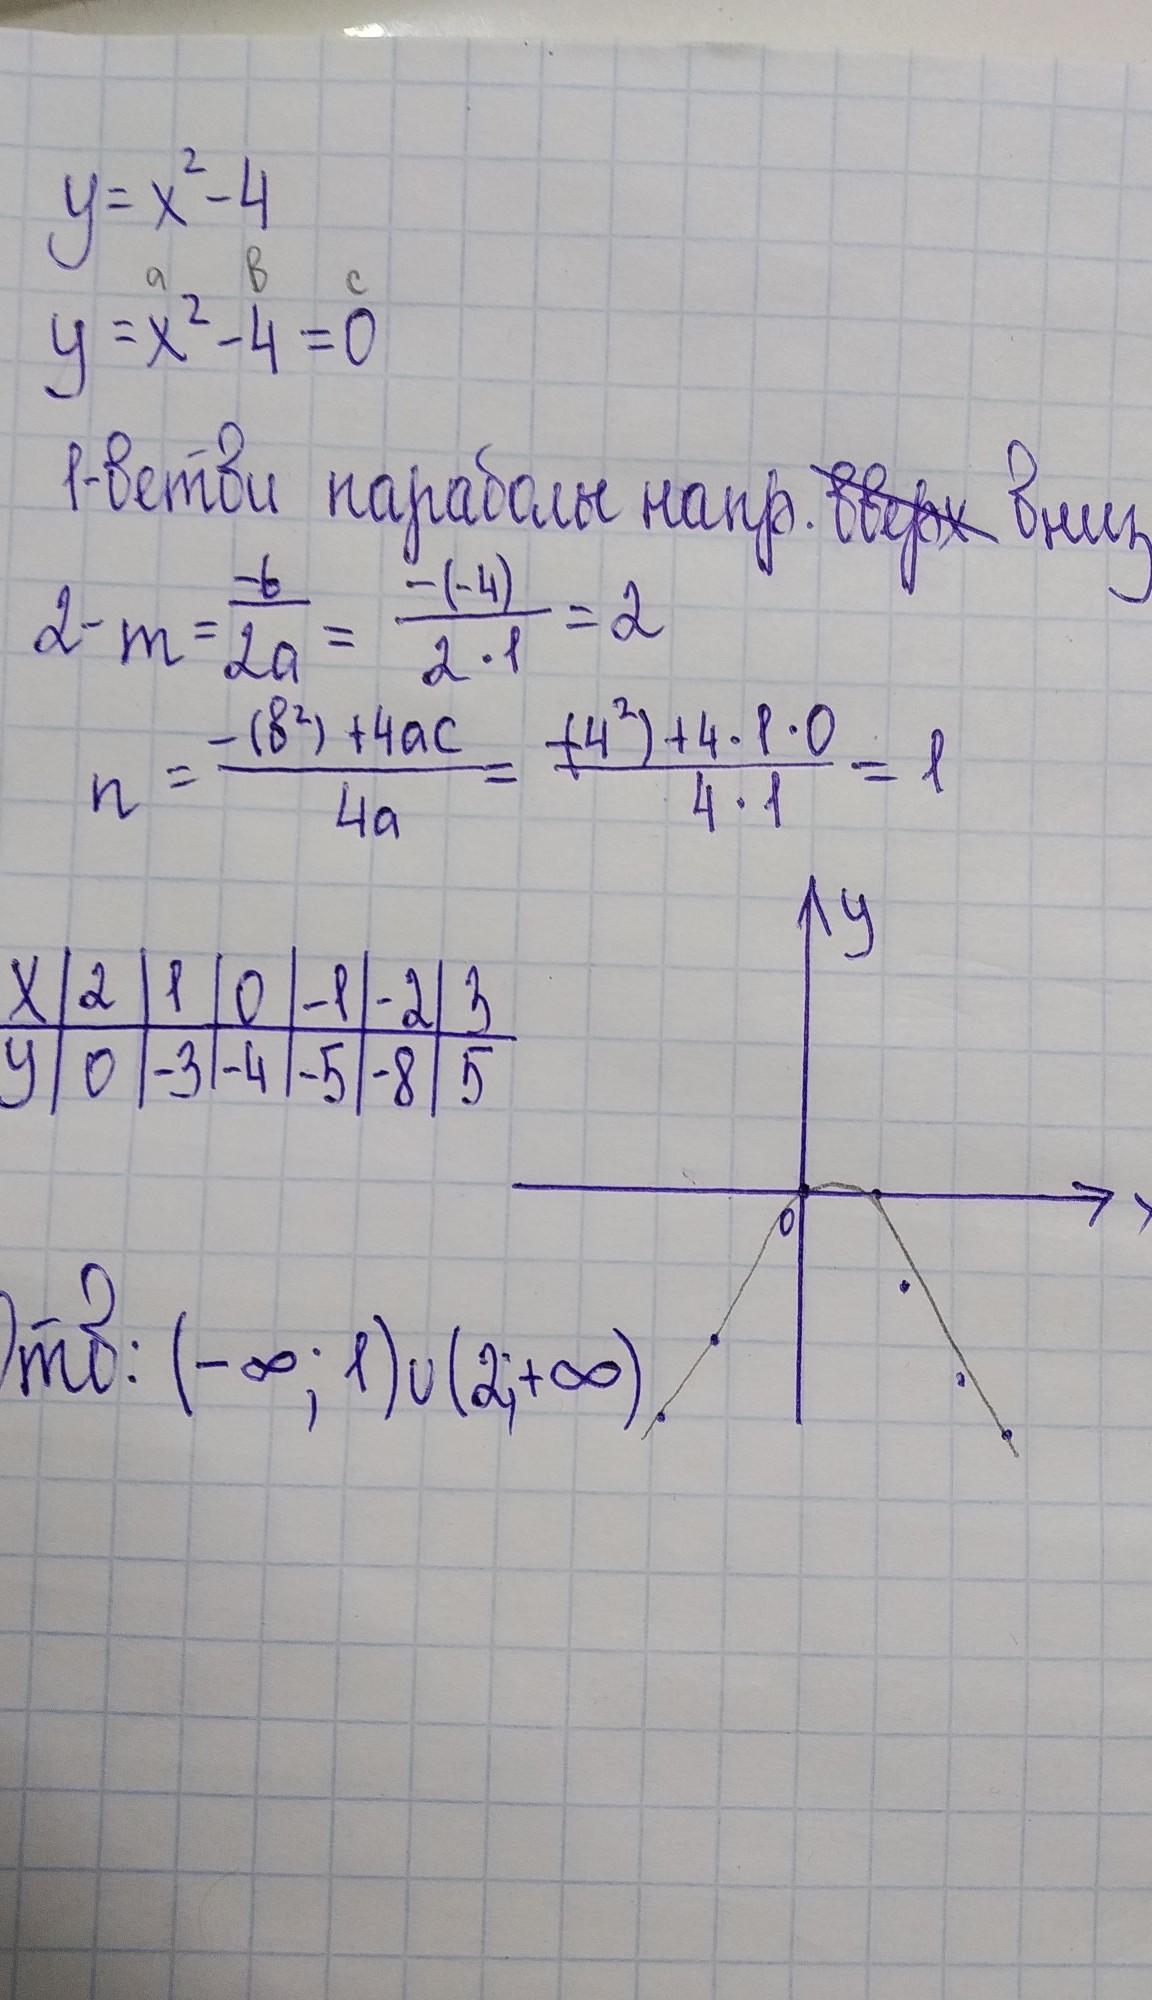 y = x² - 4
a в c
y = x² - 4 = 0
1-ветви параболы напр. вверх вниз
2- m = -b/2a = -(-4)/2·1 = 2
n = -(в²)+4ac/4a = -(4²)+4·1·0/4·1 = 1
y
X | 2 | 1 | 0 | -1 | -2 | 3
y | 0 | -3 | -4 | -5 | -8 | 5
0
Отв: (-∞; 1)∪(2;+∞)